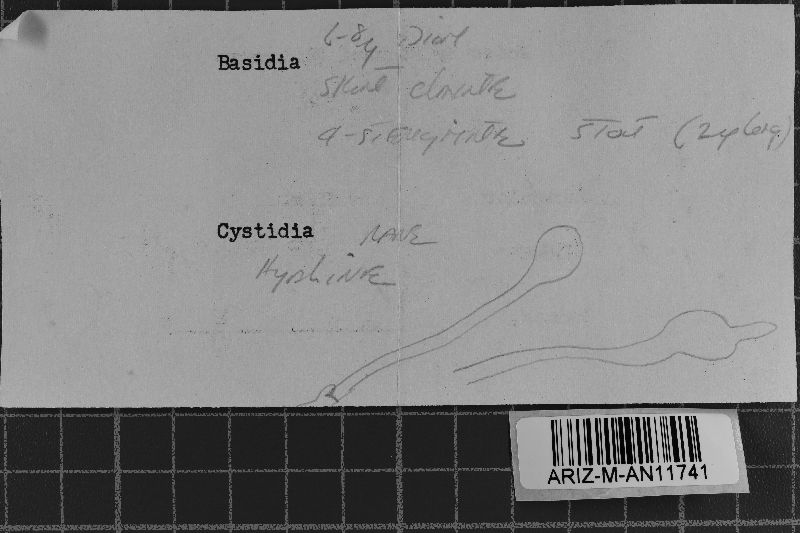 6-8µ Diam
Basidia
short clavate
4-sterigmate stout (2µ long)
Cystidia RARE
Hyaline
ARIZ-M-AN11741